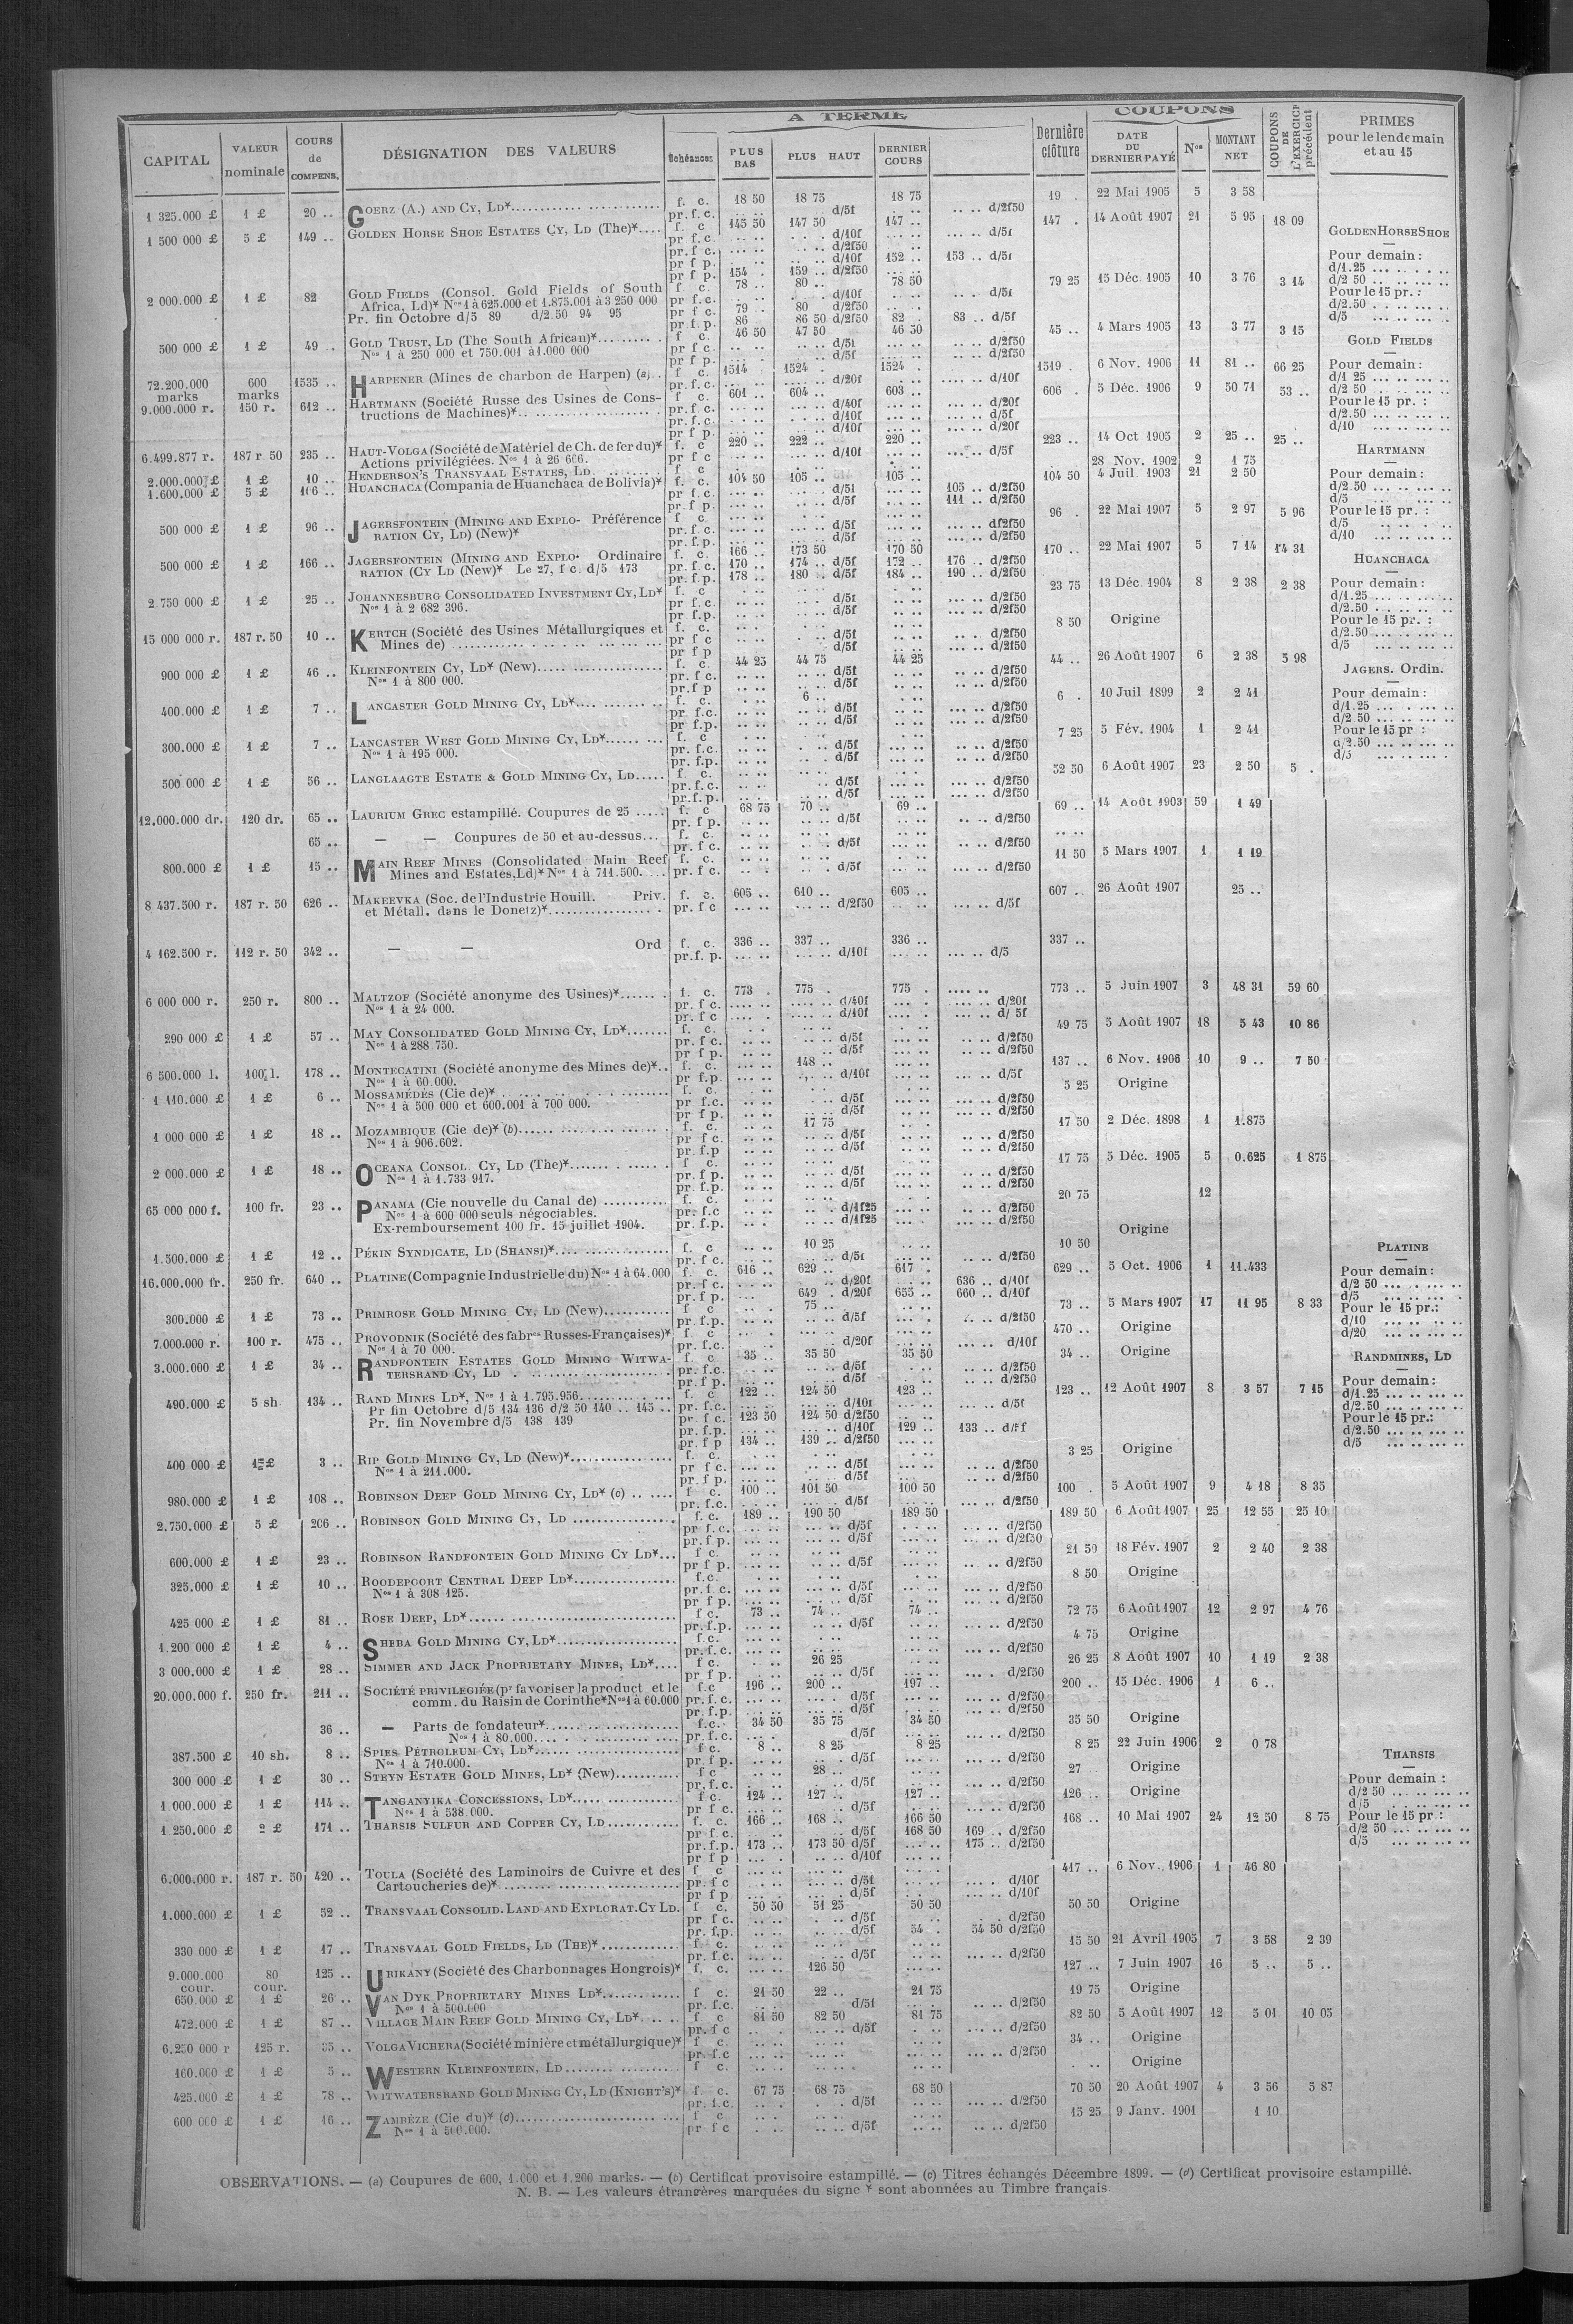 A TERME
COUPONS
CAPITAL
VALEUR nominale
COURS de COMPENS.
DÉSIGNATION DES VALEURS
Échéances
PLUS BAS
PLUS HAUT
DERNIER COURS
Dernière clôture
DATE DU DERNIER PAYÉ
Nos
MONTANT NET
COUPONS DE L'EXERCICE précédent
PRIMES pour le lendemain et au 15
1 325.000 £ 1 £ 20 .. GOERZ (A.) AND CY, LD* f. c. 18 50 18 75 18 75 19 . 22 Mai 1905 5 3 58
pr. f. c. d/5f d/2f50
1 500 000 £ 5 £ 149 .. GOLDEN HORSE SHOE ESTATES CY, LD (The)* f. c 145 50 147 50 147 .. 147 . 14 Août 1907 21 5 95 18 09
pr f. c. d/10f d/5f
pr. f c. d/2f50
pr f p. d/10f 152 .. 153 .. d/5f
pr f p. 154 . 159 .. d/2f50
2 000.000 £ 1 £ 82 GOLD FIELDS (Consol. Gold Fields of South f c. 78 .. 80 .. 78 50 79 25 15 Déc. 1905 10 3 76 3 14
Africa, Ld)* Nos 1 à 625.000 et 1.875.001 à 3 250 000 pr f.c. d/10f d/5f
Pr. fin Octobre d/5 89 d/2.50 94 95 pr f c. 79 .. 80 d/2f50
pr. f. p. 86 86 50 d/2f50 82 . 83 .. d/5f
500 000 £ 1 £ 49 .. GOLD TRUST, LD (The South African)* f c. 46 50 47 50 46 50 45 .. 4 Mars 1905 13 3 77 3 15
Nos 1 à 250 000 et 750.001 à 1.000 000 pr f c. d/5f d/2f50
pr f p. d/5f d/2f50
72.200.000 marks 600 marks 1535 .. HARPENER (Mines de charbon de Harpen) (a) f c. 1514 1524 . 1524 . 1519 . 6 Nov. 1906 11 81 .. 66 25
pr. f. c. d/20f d/10f
9.000.000 r. 150 r. 612 .. HARTMANN (Société Russe des Usines de Cons- f c. 601 .. 604 .. 603 .. 606 . 5 Déc. 1906 9 50 71 53 ..
tructions de Machines)* pr. f c. d/40f d/20f
pr. f. c. d/10f d/5f
pr f p. d/10f d/20f
6.499.877 r. 187 r 50 235 .. HAUT-VOLGA (Société de Matériel de Ch. de fer du)* f. c 220 .. 222 .. 220 .. 223 .. 14 Oct 1905 2 25 .. 25 ..
Actions privilégiées. Nos 1 à 26 666. pr f c d/10f d/5f
2.000.000 £ 1 £ 10 .. HENDERSON'S TRANSVAAL ESTATES, LD f c 28 Nov. 1902 2 1 75
1.600.000 £ 5 £ 106 .. HUANCHACA (Compania de Huanchaca de Bolivia)* f. c. 104 50 105 .. 105 .. 104 50 4 Juil. 1903 21 2 50
pr f c. d/5f 105 .. d/2f50
pr f p. d/5f 111 .. d/2f50
500 000 £ 1 £ 96 .. JAGERSFONTEIN (MINING AND EXPLO- Préférence f c. 96 . 22 Mai 1907 5 2 97 5 96
RATION CY, LD) (New)* pr. f. c. d/5f d/2f50
pr. f. p. d/5f d/2f50
500 000 £ 1 £ 166 .. JAGERSFONTEIN (MINING AND EXPLO- Ordinaire f. c. 166 .. 173 50 170 50 170 .. 22 Mai 1907 5 7 14 14 31
RATION (CY LD (New)* Le 27, f c. d/5 173 pr. f c. 170 .. 174 .. d/5f 172 .. 176 .. d/2f50
pr. f p. 178 .. 180 .. d/5f 184 .. 190 .. d/2f50
2.750 000 £ 1 £ 25 .. JOHANNESBURG CONSOLIDATED INVESTMENT CY, LD* f. c 23 75 13 Déc. 1904 8 2 38 2 38
Nos 1 à 2 682 396. pr f c. d/5f d/2f50
pr f.p. d/5f d/2f50
15 000 000 r. 187 r. 50 10 .. KERTCH (Société des Usines Métallurgiques et f. c. 8 50 Origine
Mines de) pr f c d/5f d/2f50
pr f p d/5f d/2f50
900 000 £ 1 £ 46 .. KLEINFONTEIN CY, LD* (New) f c. 44 25 44 75 44 25 44 .. 26 Août 1907 6 2 38 5 98
Nos 1 à 800 000. pr. f c. d/5f d/2f50
pr.f p d/5f d/2f50
400.000 £ 1 £ 7 .. LANCASTER GOLD MINING CY, LD* f. c. 6 .. 6 . 10 Juil 1899 2 2 41
pr f.c. d/5f d/2f50
pr f.p. d/5f d/2f50
300.000 £ 1 £ 7 .. LANCASTER WEST GOLD MINING CY, LD* f c 7 25 5 Fév. 1904 1 2 41
Nos 1 à 195 000. pr. f.c. d/5f d/2f50
pr f.p. d/5f d/2f50
500 000 £ 1 £ 56 .. LANGLAAGTE ESTATE & GOLD MINING CY, LD f c. 52 50 6 Août 1907 23 2 50 5 .
pr.f. c. d/5f d/2f50
pr.f. p. d/5f d/2f50
12.000.000 dr. 120 dr. 65 .. LAURIUM GREC estampillé. Coupures de 25 f. c 68 75 70 .. 69 .. 69 .. 14 Août 1903 59 1 49
pr. f p. d/5f d/2f50
65 .. — — Coupures de 50 et au-dessus f. c.
pr. f c. d/5f d/2f50
800.000 £ 1 £ 15 .. MAIN REEF MINES (Consolidated Main Reef f. c. 11 50 5 Mars 1907 1 1 19
Mines and Estates, Ld)* Nos 1 à 711.500. pr. f c. d/5f d/2f50
8 437.500 r. 187 r. 50 626 .. MAKEEVKA (Soc. de l'Industrie Houill. Priv. f. c. 605 .. 610 .. 605 .. 607 .. 26 Août 1907 25 ..
et Métall. dans le Donetz)* pr. f c d/2f50 d/5f
4 162.500 r. 112 r. 50 342 .. — — Ord f. c. 336 .. 337 .. 336 .. 337 ..
pr.f. p. d/10f d/5
6 000 000 r. 250 r. 800 .. MALTZOF (Société anonyme des Usines)* f. c. 773 . 775 . 775 . 773 .. 5 Juin 1907 3 48 31 59 60
Nos 1 à 24 000. pr. f c. d/40f d/20f
pr. f c d/10f d/ 5f
290 000 £ 1 £ 57 .. MAY CONSOLIDATED GOLD MINING CY, LD* f. c. 49 75 5 Août 1907 18 5 43 10 86
Nos 1 à 288 750. pr f c. d/5f d/2f50
pr f p. d/5f d/2f50
6 500.000 l. 100 l. 178 .. MONTECATINI (Société anonyme des Mines de)* f. c. 148 .. 137 .. 6 Nov. 1906 10 9 .. 7 50
Nos 1 à 60.000. pr f.p. d/10f d/5f
1 110.000 £ 1 £ 6 .. MOSSAMÉDÈS (Cie de)* f. c. 5 25 Origine
Nos 1 à 500 000 et 600.001 à 700 000. pr f.c. d/5f d/2f50
pr f p. d/5f d/2f50
1 000 000 £ 1 £ 18 .. MOZAMBIQUE (Cie de)* (b) f. c. 17 75 17 50 2 Déc. 1898 1 1.875
Nos 1 à 906.602. pr f c. d/5f d/2f50
pr. f.p d/5f d/2f50
2 000.000 £ 1 £ 18 .. OCEANA CONSOL CY, LD (The)* f c. 17 75 5 Déc. 1905 5 0.625 1 875
Nos 1 à 1.733 917. pr. f p. d/5f d/2f50
pr. f.p. d/5f d/2f50
65 000 000 f. 100 fr. 23 .. PANAMA (Cie nouvelle du Canal de) f. c. 20 75 12
Nos 1 à 600 000 seuls négociables. pr. f.c d/1f25 d/2f50
Ex-remboursement 100 fr. 15 juillet 1904. pr. f.p. d/1f25 d/2f50
Origine
1.500.000 £ 1 £ 12 .. PÉKIN SYNDICATE, LD (SHANSI)* f. c 10 25 10 50
pr. f c. d/5f d/2f50
16.000.000 fr. 250 fr. 640 .. PLATINE (Compagnie Industrielle du) Nos 1 à 64.000 f. c. 616 .. 629 .. 617 . 629 .. 5 Oct. 1906 1 11.433
pr. f c. d/20f 636 .. d/10f
pr. f p. 649 . d/20f 655 .. 660 .. d/10f
300.000 £ 1 £ 73 .. PRIMROSE GOLD MINING CY, LD (New) f c 75 .. 73 .. 5 Mars 1907 17 11 95 8 33
pr. f.p. d/5f d/2f50
7.000.000 r. 100 r. 475 .. PROVODNIK (Société des fabres Russes-Françaises)* f c 470 .. Origine
Nos 1 à 70 000. pr. f.c. d/20f d/10f
3.000.000 £ 1 £ 34 .. RANDFONTEIN ESTATES GOLD MINING WITWA- f c 35 .. 35 50 35 50 34 .. Origine
TERSRAND CY, LD pr. f.c. d/5f d/2f50
pr. f p. d/5f d/2f50
490.000 £ 5 sh 134 .. RAND MINES LD*, Nos 1 à 1.795.956 f c 122 .. 124 50 123 .. 123 .. 12 Août 1907 8 3 57 7 15
Pr fin Octobre d/5 134 136 d/2 50 140 .. 145 .. pr. f.c. d/10f d/5f
Pr. fin Novembre d/5 138 139 pr. f c. 123 50 124 50 d/2f50
pr. f.p. d/10f 129 .. 133 ..
pr. f p 134 .. 139 .. d/2f50
400 000 £ 1 £ 3 .. RIP GOLD MINING CY, LD (New)* f. c. 3 25 Origine
Nos 1 à 211.000. pr f c. d/5f d/2f50
pr. f p. d/5f d/2f50
980.000 £ 1 £ 108 .. ROBINSON DEEP GOLD MINING CY, LD* (c) f c. 100 .. 101 50 100 50 100 . 5 Août 1907 9 4 18 8 35
pr. f.c. d/5f d/2f50
2.750.000 £ 5 £ 206 .. ROBINSON GOLD MINING CY, LD f. c. 189 .. 190 50 189 50 189 50 6 Août 1907 25 12 55 25 10
pr f.c. d/5f d/2f50
pr. f p. d/5f d/2f50
600.000 £ 1 £ 23 .. ROBINSON RANDFONTEIN GOLD MINING CY LD* f c. 21 50 18 Fév. 1907 2 2 40 2 38
pr f p. d/5f d/2f50
325.000 £ 1 £ 10 .. ROODEPOORT CENTRAL DEEP LD* f.c. 8 50 Origine
Nos 1 à 308 125. pr. f. c. d/5f d/2f50
pr f p. d/5f d/2f50
425 000 £ 1 £ 81 .. ROSE DEEP, LD* f c. 73 .. 74 .. 74 .. 72 75 6 Août 1907 12 2 97 4 76
pr. f.p. d/5f d/2f50
1.200 000 £ 1 £ 4 .. SHEBA GOLD MINING CY, LD* f.c. 4 75 Origine
pr. f. c. d/2f50
3 000.000 £ 1 £ 28 .. SIMMER AND JACK PROPRIETARY MINES, LD* f c. 26 25 26 25 8 Août 1907 10 1 19 2 38
pr f p. d/5f d/2f50
20.000.000 f. 250 fr. 211 .. SOCIÉTÉ PRIVILEGIÉE (pr favoriser la product et le f.c 196 .. 200 .. 197 .. 200 .. 15 Déc. 1906 1 6 ..
comm. du Raisin de Corinthe* Nos 1 à 60.000 pr. f. c. d/5f d/2f50
pr. f.p. d/5f d/2f50
36 .. — Parts de fondateur* f.c. 34 50 35 75 34 50 35 50 Origine
Nos 1 à 80.000 pr. f.c. d/5f d/2f50
387.500 £ 10 sh. 8 .. SPIES PÉTROLEUM CY, LD* f c. 8 .. 8 25 8 25 8 25 22 Juin 1906 2 0 78
Nos 1 à 710.000. pr f p. d/5f d/2f50
300 000 £ 1 £ 30 .. STEYN ESTATE GOLD MINES, LD* (New) f c 28 .. 27 Origine
pr. f. c. d/5f d/2f50
1.000.000 £ 1 £ 114 .. TANGANYIKA CONCESSIONS, LD* f c. 124 .. 127 .. 127 .. 126 .. Origine
Nos 1 à 538 000. pr f c. d/5f d/2f50
1 250.000 £ 2 £ 171 .. THARSIS SULFUR AND COPPER CY, LD f. c. 166 .. 168 .. 166 50 168 .. 10 Mai 1907 24 12 50 8 75
pr f c. d/5f 168 50 169 .. d/2f50
pr. f.p. 173 .. 173 50 d/5f 175 .. d/2f50
pr f p d/10f
6.000.000 r. 187 r. 50 420 .. TOULA (Société des Laminoirs de Cuivre et des f c 417 .. 6 Nov. 1906 1 46 80
Cartoucheries de)* pr. f c d/5f d/10f
pr f p d/5f d/10f
1.000.000 £ 1 £ 52 .. TRANSVAAL CONSOLID. LAND AND EXPLORAT. CY LD. f c. 50 50 51 25 50 50 50 50 Origine
pr f c. d/5f d/2f50
pr. f.p. d/5f 54 . 54 50 d/2f50
330 000 £ 1 £ 17 .. TRANSVAAL GOLD FIELDS, LD (THE)* f c. 15 50 21 Avril 1905 7 3 58 2 39
pr. f c. d/5f d/2f50
9.000.000 cour. 80 cour. 125 .. URIKANY (Société des Charbonnages Hongrois)* f. c. 126 50 127 .. 7 Juin 1907 16 5 .. 5 ..
650.000 £ 1 £ 26 .. VAN DYK PROPRIETARY MINES LD* f c. 21 50 22 .. 21 75 19 75 Origine
Nos 1 à 500.000 pr. f.c. d/5f d/2f50
472.000 £ 1 £ 87 .. VILLAGE MAIN REEF GOLD MINING CY, LD* f c 81 50 82 50 81 75 82 50 5 Août 1907 12 5 01 10 05
pr. f c d/5f d/2f50
6.250 000 r 125 r. 35 .. VOLGA VICHERA (Société minière et métallurgique)* f c. 34 .. Origine
pr. f.c d/2f50
160.000 £ 1 £ 5 .. WESTERN KLEINFONTEIN, LD f c. Origine
425.000 £ 1 £ 78 .. WITWATERSRAND GOLD MINING CY, LD (KNIGHT'S)* f. c. 67 75 68 75 68 50 70 50 20 Août 1907 4 3 56 5 87
pr. f.c. d/5f d/2f50
600 000 £ 1 £ 16 .. ZAMBÈZE (Cie du)* (d) f c 15 25 9 Janv. 1901 1 10
Nos 1 à 500.000. pr f c d/5f d/2f50
GOLDEN HORSE SHOE
Pour demain :
d/1.25
d/2 50
Pour le 15 pr. :
d/2.50
d/5
GOLD FIELDS
Pour demain :
d/1 25
d/2 50
Pour le 15 pr. :
d/2.50
d/10
HARTMANN
Pour demain :
d/2.50
d/5
Pour le 15 pr. :
d/5
d/10
HUANCHACA
Pour demain :
d/1.25
d/2.50
Pour le 15 pr. :
d/2.50
d/5
JAGERS. Ordin.
Pour demain :
d/1.25
d/2.50
Pour le 15 pr :
d/2.50
d/5
PLATINE
Pour demain :
d/2 50
d/5
Pour le 15 pr.:
d/10
d/20
RANDMINES, LD
Pour demain :
d/1.25
d/2.50
Pour le 15 pr.:
d/2.50
d/5
THARSIS
Pour demain :
d/2 50
d/5
Pour le 15 pr :
d/2 50
d/5
OBSERVATIONS. — (a) Coupures de 600, 1.000 et 1.200 marks. — (b) Certificat provisoire estampillé. — (c) Titres échangés Décembre 1899. — (d) Certificat provisoire estampillé.
N. B. — Les valeurs étrangères marquées du signe * sont abonnées au Timbre français